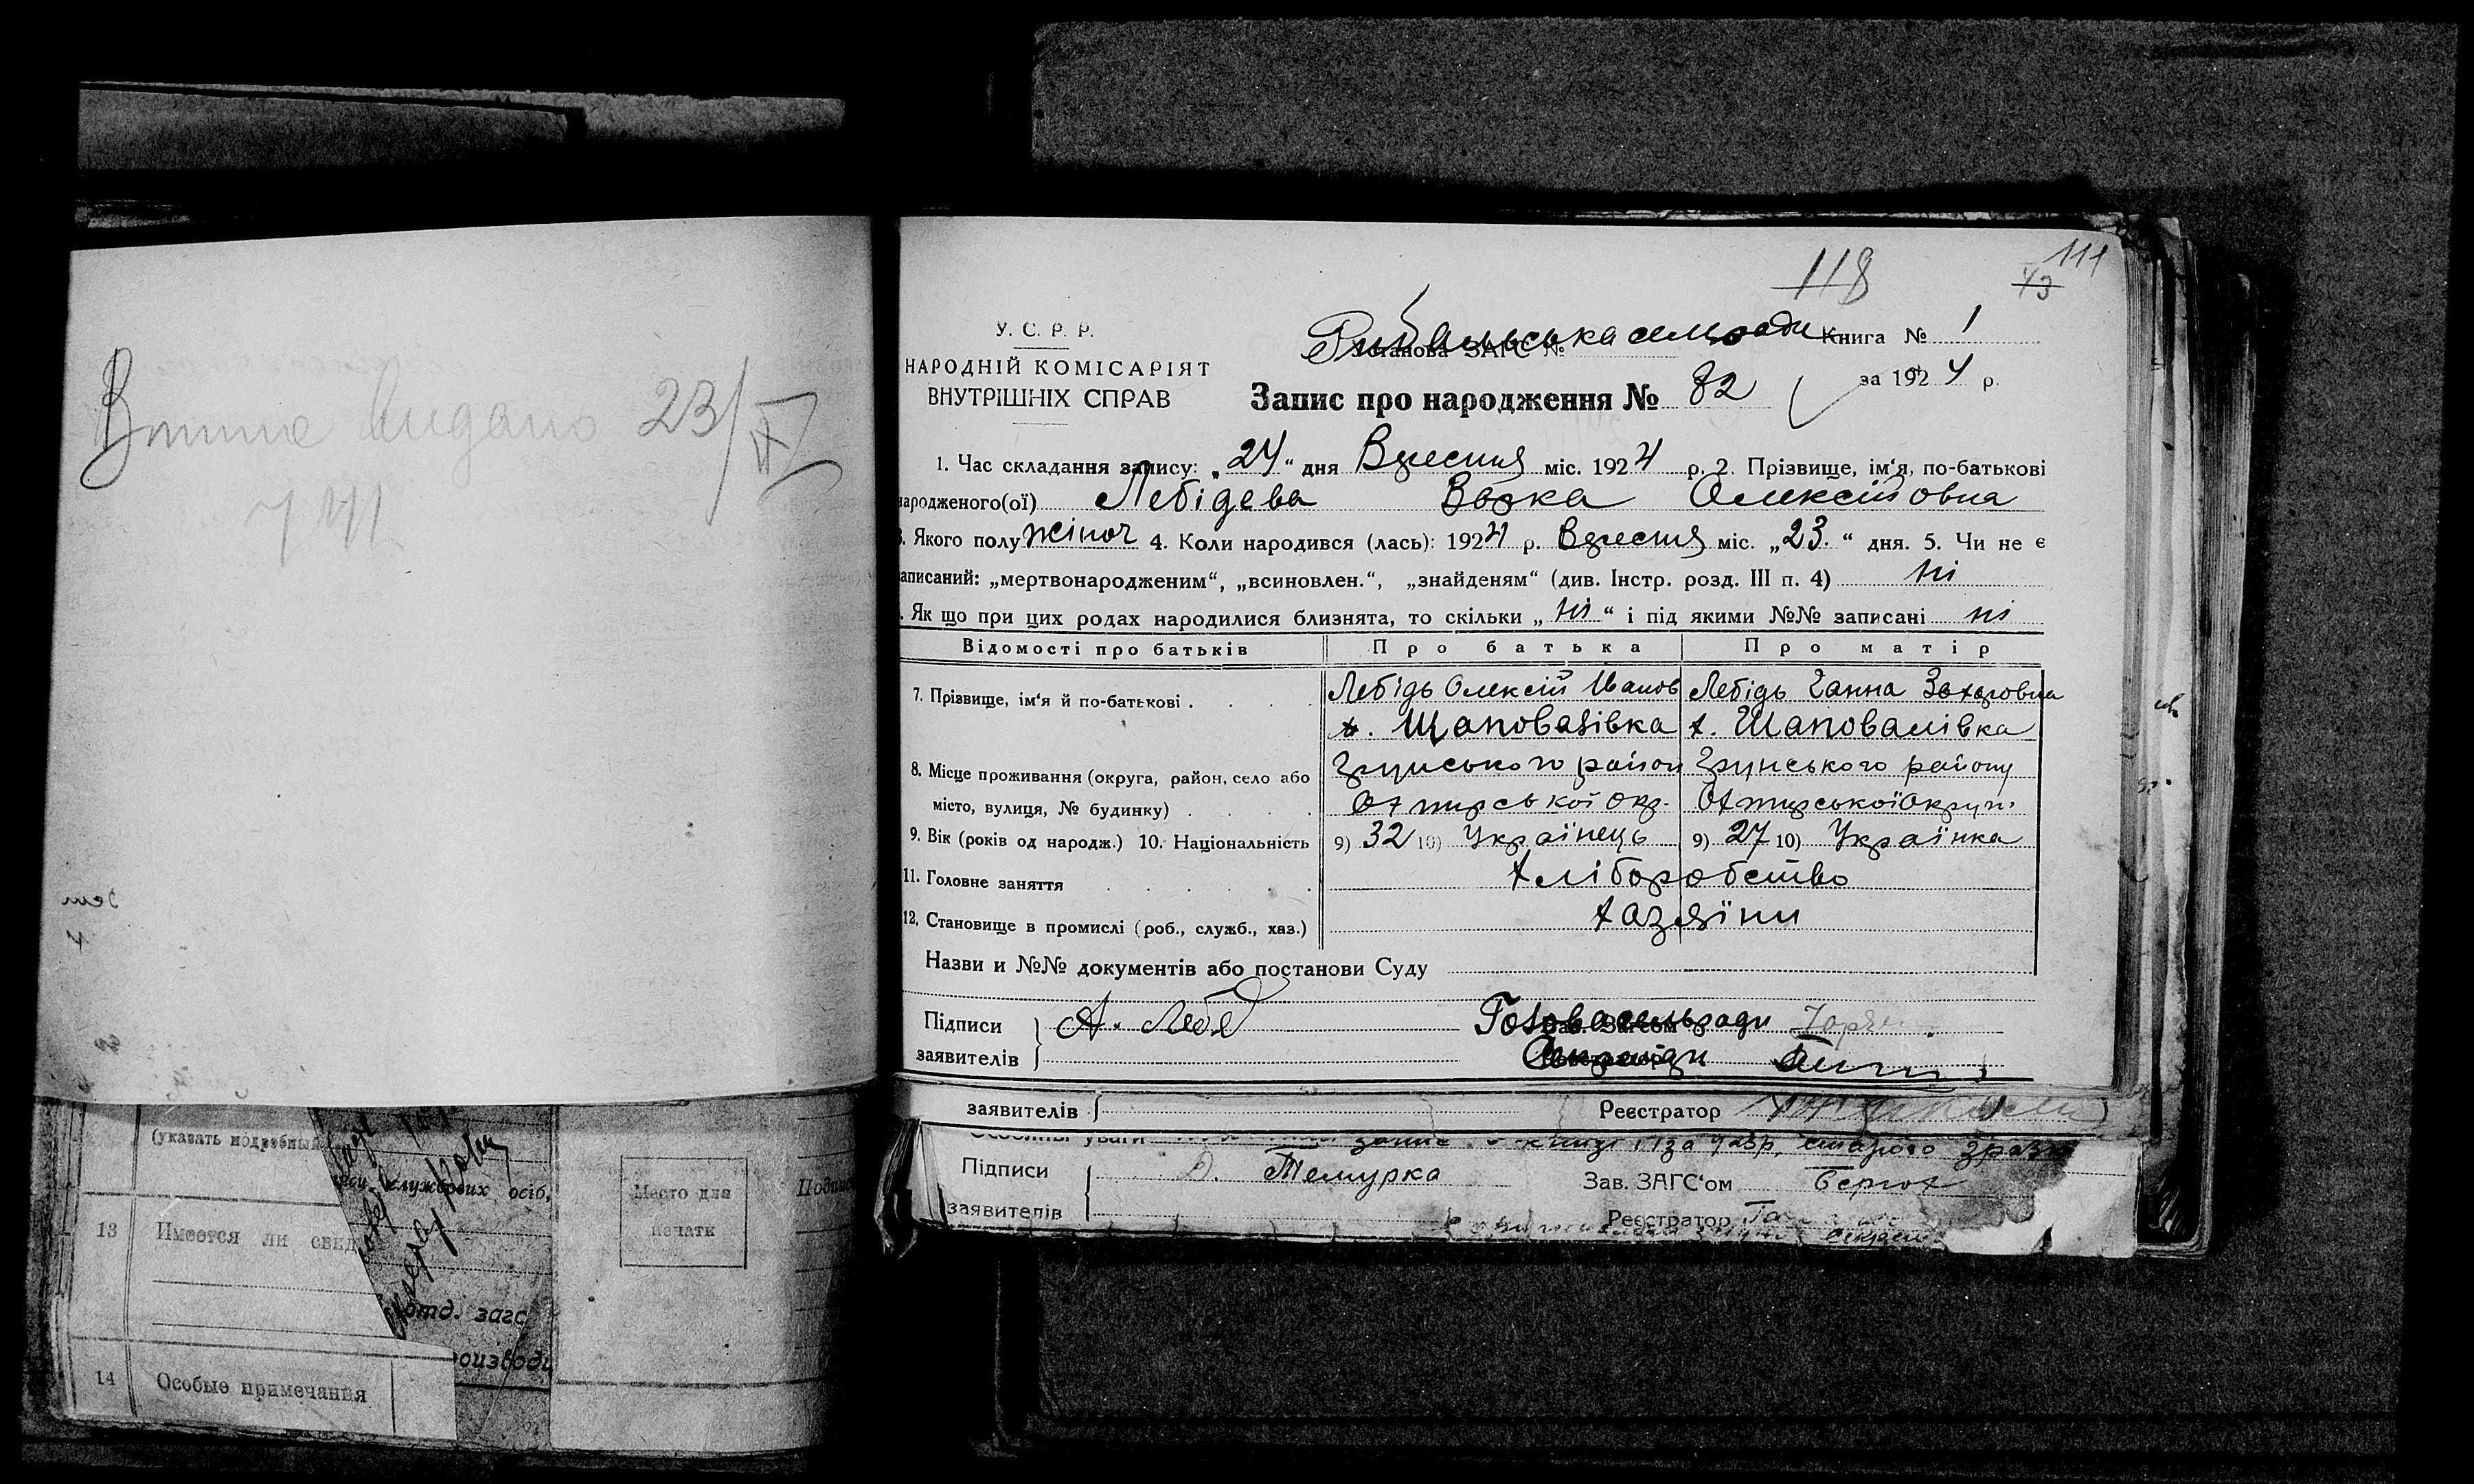 видано 23/IV
741
118
111
43
У. С. Р. Р.
НАРОДНІЙ КОМІСАРІЯТ
ВНУТРІШНІХ СПРАВ
Установа ЗАГС №
Рибальська сельради
Книга № 1
за 1924 р.
Запис про народження № 82
1. Час складання запису: „24“ дня Вересня міс. 1924 р. 2. Прізвище, ім‘я, по-батькові
народженого(ої) Лебідева Олексійовна
3. Якого полу жіноч 4. Коли народився (лась): 1924 р. Вересня міс. „23.“ дня. 5. Чи не є
записаний: „мертвонародженим“, „всиновлен.“, „знайденям“ (див. Інстр. розд. III п. 4) ні
. Як що при цих родах народилися близнята, то скільки „ні“ і під якими №№ записані ні
Відомості про батьків Про батька Про матір
7. Прізвище, ім‘я й по-батькові . Лебідь Олексій Іванов Лебідь Ганна Захаровна
х. Шаповалівка х. Шаповалівка
8. Місце проживання (округа, район, село або Грунського район Грунського району
місто, вулиця, № будинку) Охтирської окр. Охтирської Округи
9. Вік (років од народж.) 10. Національність 9) 32 10) Українець 9) 27 10) Українка
11. Головне заняття Хліборобство
12. Становище в промислі (роб., служб., хаз.) Хазяїни
Назви и №№ документів або постанови Суду
Підписи А. Лебед Голова сельради
заявителів
заявителів Реєстратор
запис
Підписи Зав. ЗАГС‘ом
заявителів Реєстратор
(указать подробный
службових осіб,
Место для
печати
13 Имеется ли свид
отд. загс
14 Особые примечания